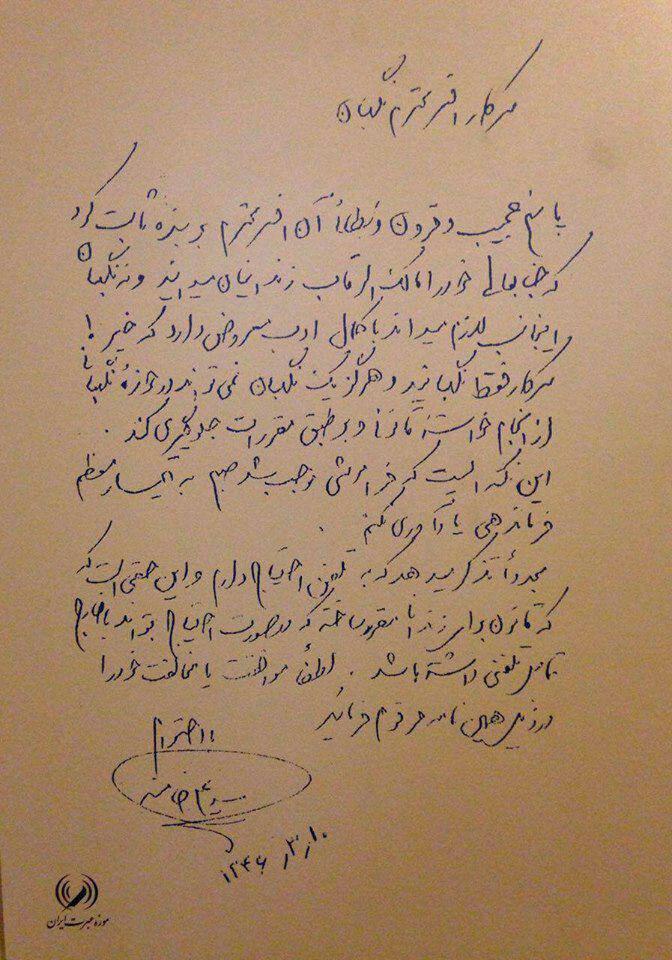 سرکار افسر محترم نگهبان
پاسخ عجیب و قرون وسطائی آن افسر محترم بر بنده ثابت کرد
که جنابعالی خود را مالک الرقاب زندانیان میدانید و نه نگهبان
اینجانب لازم میداند با کمال ادب معروض دارد که خیر!
سرکار فقط نگهبانید و هرگز یک نگهبان نمی تواند در حوزهٔ نگهبانی
از انجام خواستهٔ قانونی و بر طبق مقررات جلوگیری کند .
این نکته ایست که فراموشی موجب شد صبح به تیمسار معظم
فرماندهی یادآوری کنم .
مجدداً تذکر میدهد که به تلفن احتیاج دارم و این حقی است که
که قانون برای زندانی مقرر ساخته که در صورت احتیاج بتواند با خارج
تماس تلفنی داشته باشد . لطفاً موافقت یا مخالفت خود را
در ذیل همین نامه مرقوم فرمائید
با احترام
سید علی خامنه
۱۰ر۳ر۱۳۴۶
موزه عبرت ایران